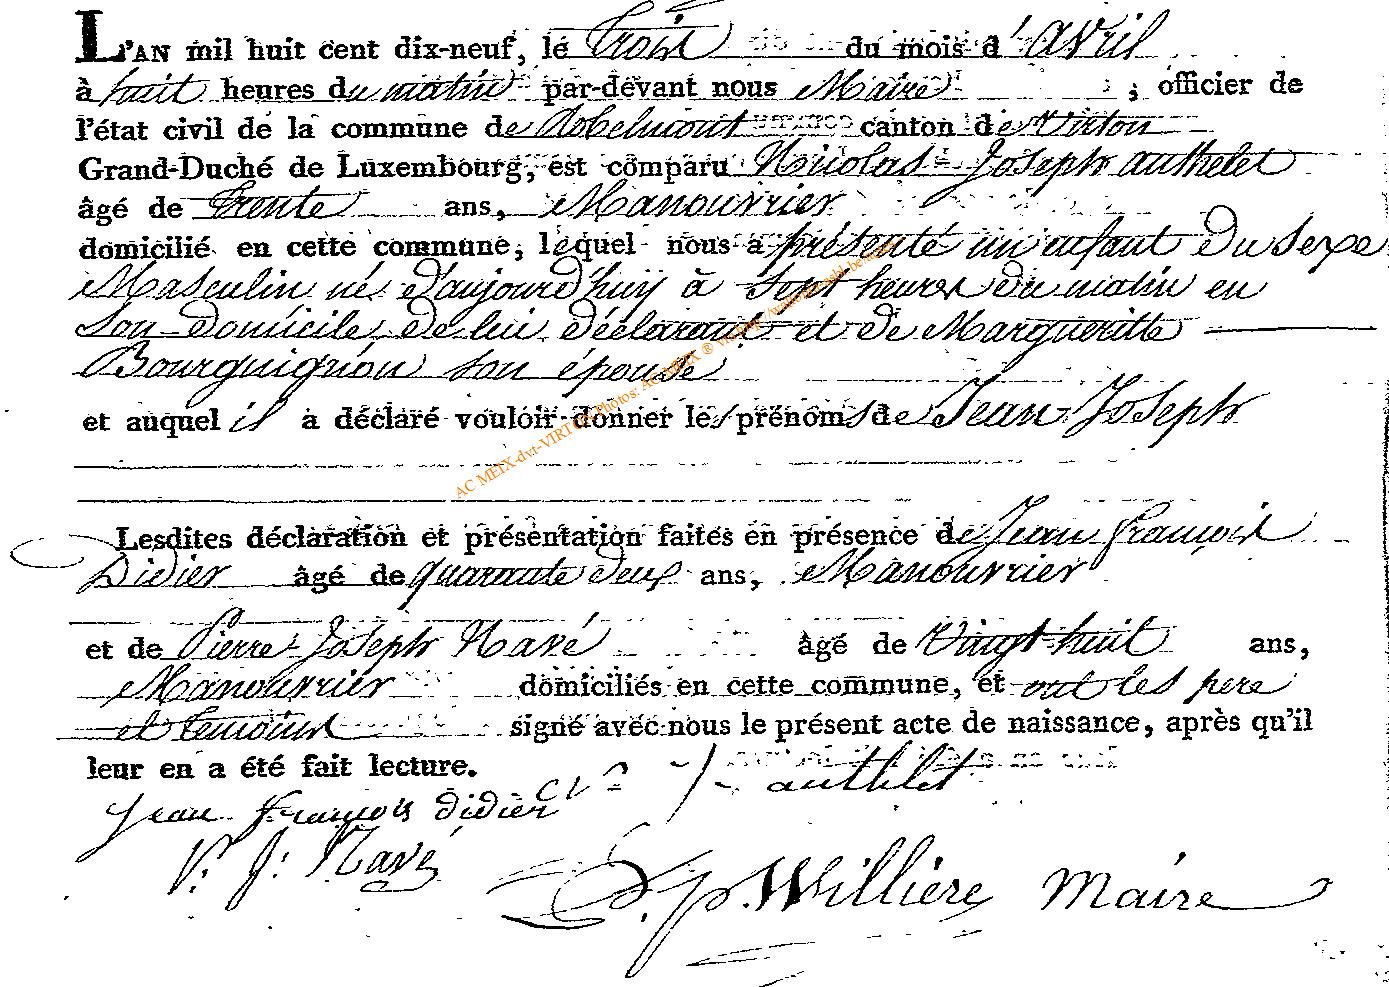 L'AN mil huit cent dix-neuf, le trois du mois d'avril
à huit heures du matin par-devant nous Maire ; officier de
l'état civil de la commune de Robelmont canton de Virton
Grand-Duché de Luxembourg, est comparu Nicolas-Joseph authelet
âgé de trente ans, Manouvrier
domicilié en cette commune, lequel nous a présenté un enfant du sexe
Masculin né d'aujourd'huy à sept heures du matin en
son domicile de lui déclarant et de Margueritte
Bourguignon son épouse
et auquel il a déclaré vouloir donner les prénoms de Jean-Joseph
Lesdites déclaration et présentation faites en présence de Jean françois
Didier âgé de quarante deux ans, Manouvrier
et de Pierre-Joseph Navé âgé de vingt-huit ans,
Manouvrier domiciliés en cette commune, et ont les pere
et temoins signé avec nous le présent acte de naissance, après qu'il
leur en a été fait lecture.
authelet
Jean françois didier
P. J. Navé
Willière Maire
AC MEIX-dvt-VIRTON Photos: AC MEIX ®